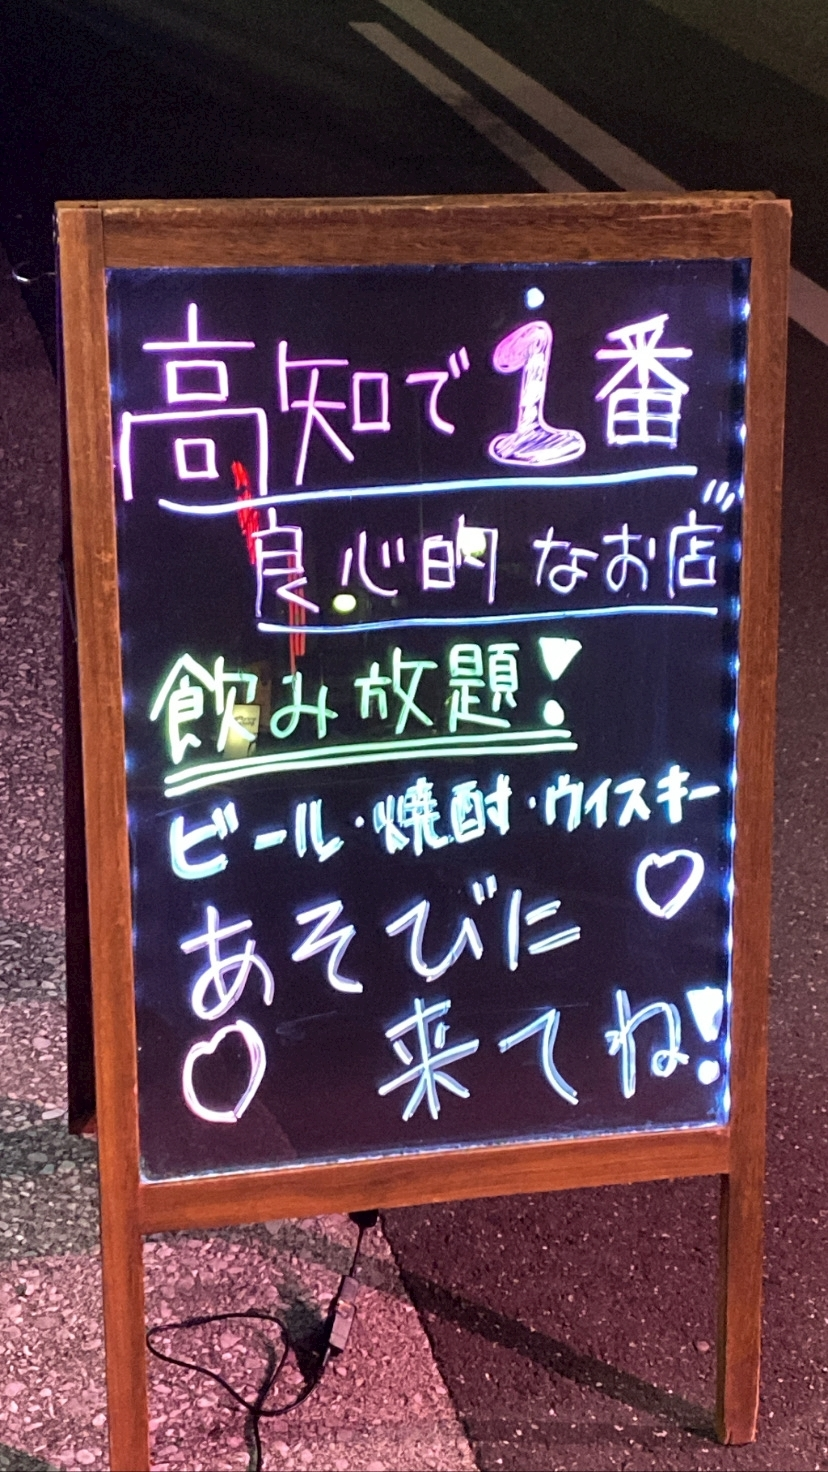 高知で1番
良心的なお店
飲み放題!
ビール・焼酎・ウイスキー
あそびに
来てね!